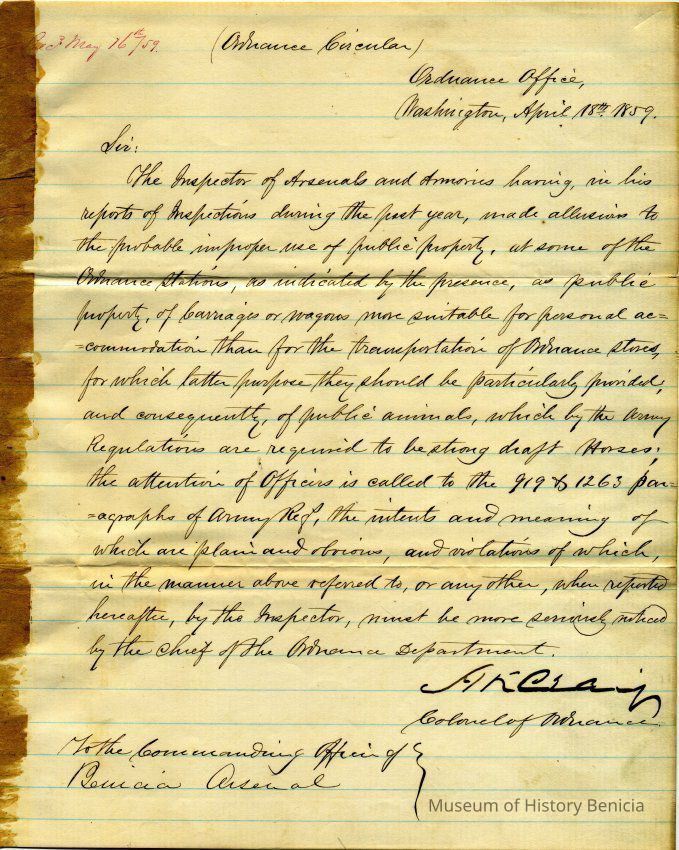 Rec'd May 16th/59.
(Ordnance Circular)
Ordnance Office,
Washington, April 18th 1859.
Sir:
The Inspector of Arsenals and Armories having, in his
reports of Inspections during the past year, made allusion to
the probable improper use of public property, at some of the
Ordnance Stations, as indicated by the presence, as public
property, of Carriages or wagons more suitable for personal ac=
=commodation than for the transportation of Ordnance stores,
for which latter purpose they should be particularly provided,
and consequently, of public animals, which by the Army
Regulations are required to be strong draft Horses;
the attention of Officers is called to the 919 & 1263 par=
=agraphs of Army Regs, the intents and meaning of
which are plain and obvious, and violations of which,
in the manner above referred to, or any other, when reported
hereafter, by the Inspector, must be more seriously noticed
by the Chief of the Ordnance Department.
H K Craig
Colonel of Ordnance
To the Commanding Officer of
Benicia Arsenal
Museum of History Benicia